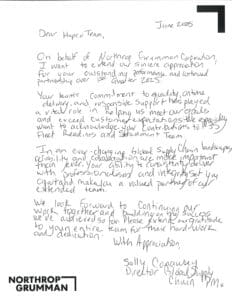 June 2025
Dear Hapco Team,
On behalf of Northrop Grumman Corporation,
I want to extend our sincere appreciation
for your outstanding performance and continued
partnership over 1st Quarter 2025.
Your commitment to quality, on time
delivery, and responsive support has played
a vital role in helping us meet our goals
and exceed customer expectations. We especially
want to acknowledge your contributions to
Fleet Readiness and
In an ever-changing Global Supply Chain landscape,
reliability and collaboration are more important
than ever. Your ability to consistently deliver
with professionalism and integrity set you
apart and make you a valued partner of our
extended team.
We look forward to continuing our
work together and building on the success
we've achieved so far. Please extend our gratitude
to your entire team for their hard work
and dedication.
With Appreciation,
Sally
Director Global Supply
Chain
NORTHROP
GRUMMAN